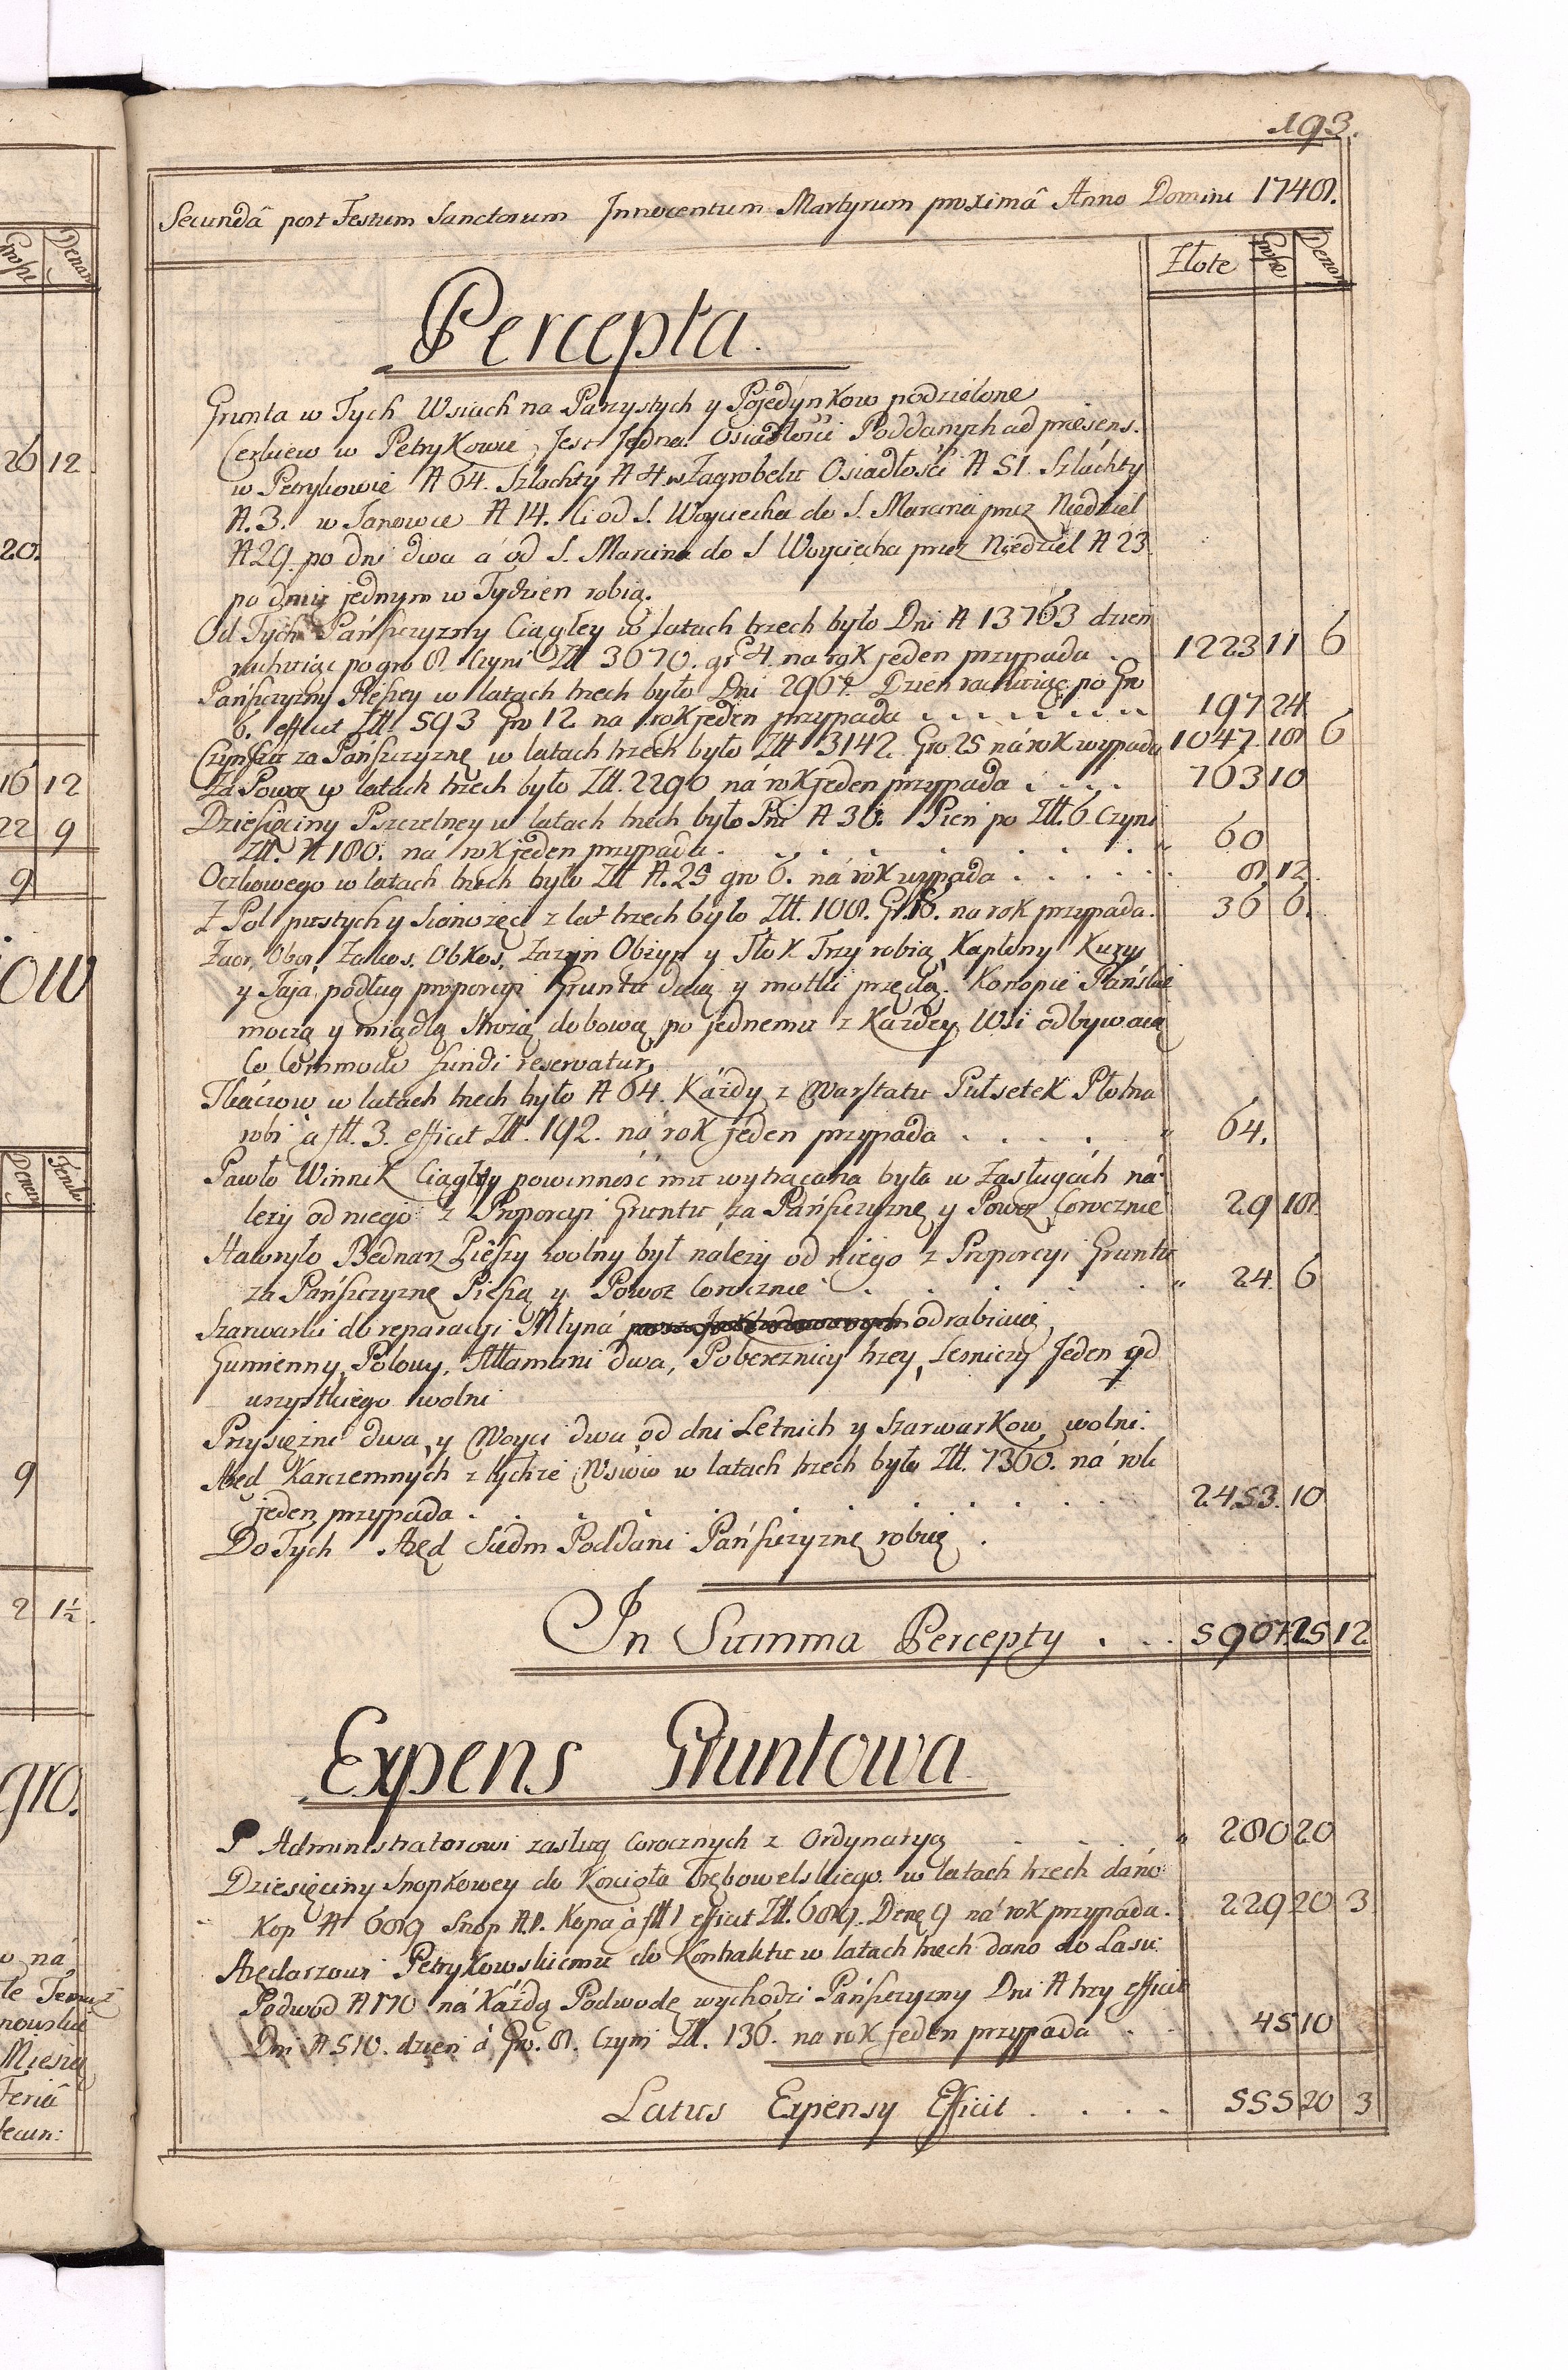 193.
Secundâ post Festum Sanctorum Innocentum Martyrum proximâ Anno Domini 1748.
Złote Grosze Denar
Percepta.
Grunta w Tych Wsiach na Parzystych y Pojedynkow podzielone
Cerkiew w Petrykowie Jest Jedna Osiadłości Poddanych ad praesens.
w Petrykowie N 64. Szlachty N 4. w Zagrobelu Osiadłości N 51. Szláchty
N. 3. w Janowce N 14. Ci od S. Woyciecha do S. Marcina przez Niedziel
N 29. po dni dwa á od S. Marcina do S Woyciecha przez Niedziel N 23
po dniu jednym w Tydzien robią.
Od Tych Pańszczyzny Ciągłey w latach trzech było Dni N 13763 dzien
rachuiąc po gro 8. Czyni Złł 3670. gr 4. na rok jeden przypada . 1223 11 6
Pańszczyzny Pieszey w latach trzech było Dni 2967. Dzien rachuiąc po Gro
6. efficit Złł. 593 Gro 12 na rok jeden przypada . . . . . . . 197 24
Czynszu za Pańszczyznę w latach trzech było Złł 3142. Gro 25 ná rok wypada 1047. 18 6
Za Powoz w latach trzech było Złł. 2290 ná rok jeden przypada . . . . 763 10
Dziesięciny Pszczelney w latach trzech było Pni N 30. Pien po Złł. 6 Czyni
Złł. N 180. ná rok jeden przypada . . . . . . . . 60
Oczkowego w latach trzech było Złł N. 25 gro 6. ná rok wypada . . . . . 8 12.
Z Pol pustych y Sianożęci z lat trzech było Złł. 108. Gr. 18. na rok przypada. 36 6.
Zaor, Obor, Zakos, Obkos, Zazyn Obżyn y Tłok Trzy robią Kapłony Kury
y Jaja podług proporcyi Gruntu daią y motki przędą. Konopie Pańskie
moczą y miądlą Strożą dobową po jednemu z Każdey Wsi odbywaią
Co Commodo fundi reservatur,
Tkáczow w latach trzech było N 64. Káżdy z Warsztatu Pułsetek Płotna
robi à fłł. 3. efficit Złł. 192. ná rok jeden przypada . . . . . 64.
Pawło Winnik Ciągły powinność mu wytrącona była w Zasługách ná-
leży od niego z Proporcyi Gruntu za Pańszczyznę y Powoz Corocznie 29 18.
Hawryło Bednarz Pieszy wolny był należy od niego z Proporcyi Gruntu
za Pańszczyznę Pieszą y Powoz Corocznie . . . . . . . 24. 6
Szarwarki do reparacyi Młyná odrabiaią,
Gumienny, Polowy, Attamani dwa, Pobereznicy trzey, Lesniczy Jeden od
wszystkiego wolni
Przysiężni dwa y Woyci dwa od dni Letnich y Szarwarkow wolni.
Aręd Karczemnych z tychże Wsiow w latach trzech było Złł. 7360. ná rok
jeden przypada . . . . . . . . . . 2453. 10
Do Tych Aręd Siedm Poddani Pańszczyznę robią .
In Summa Percepty . . . 5907. 25 12
Expens Gruntowa
P Administratorowi zasług Corocznych z Ordynaryą . . . . 280 20
Dziesięciny Snopkowey do Kościoła Trębowelskiego w latach trzech dano
Kop N 689 Snop N 1. Kopa à fłł 1 efficit Złł. 689. Dena 9 ná rok przypada. 229 20 3
Aręndarzowi Petrykowskiemu do Kontraktu w latach trzech dano do Lasu
Podwod N 170 ná Káżdą Podwodę wychodzi Pańszczyzny Dni N trzy efficit
Dni N 510. dzien à Gro. 8. Czyni Złł. 136. na rok jeden przypada . . 45 10
Latus Expensy Efficit . . . . 555 20 3